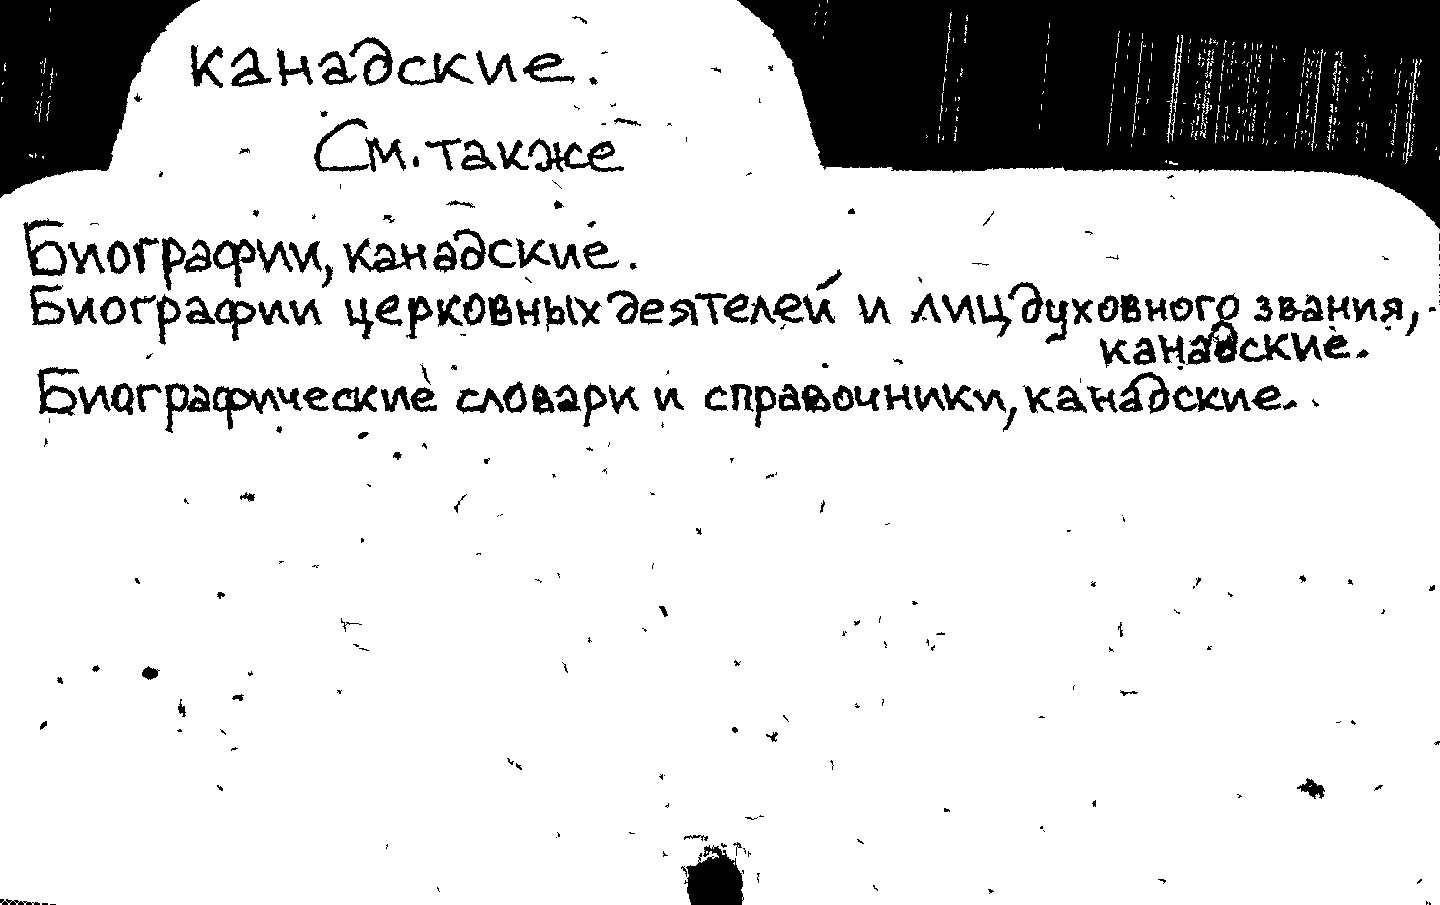 канадские.
См. также
Биографии, канадские.
Биографии церковных деятелей и лиц духовного звания,
канадские.
Биографические словари и справочники, канадские.